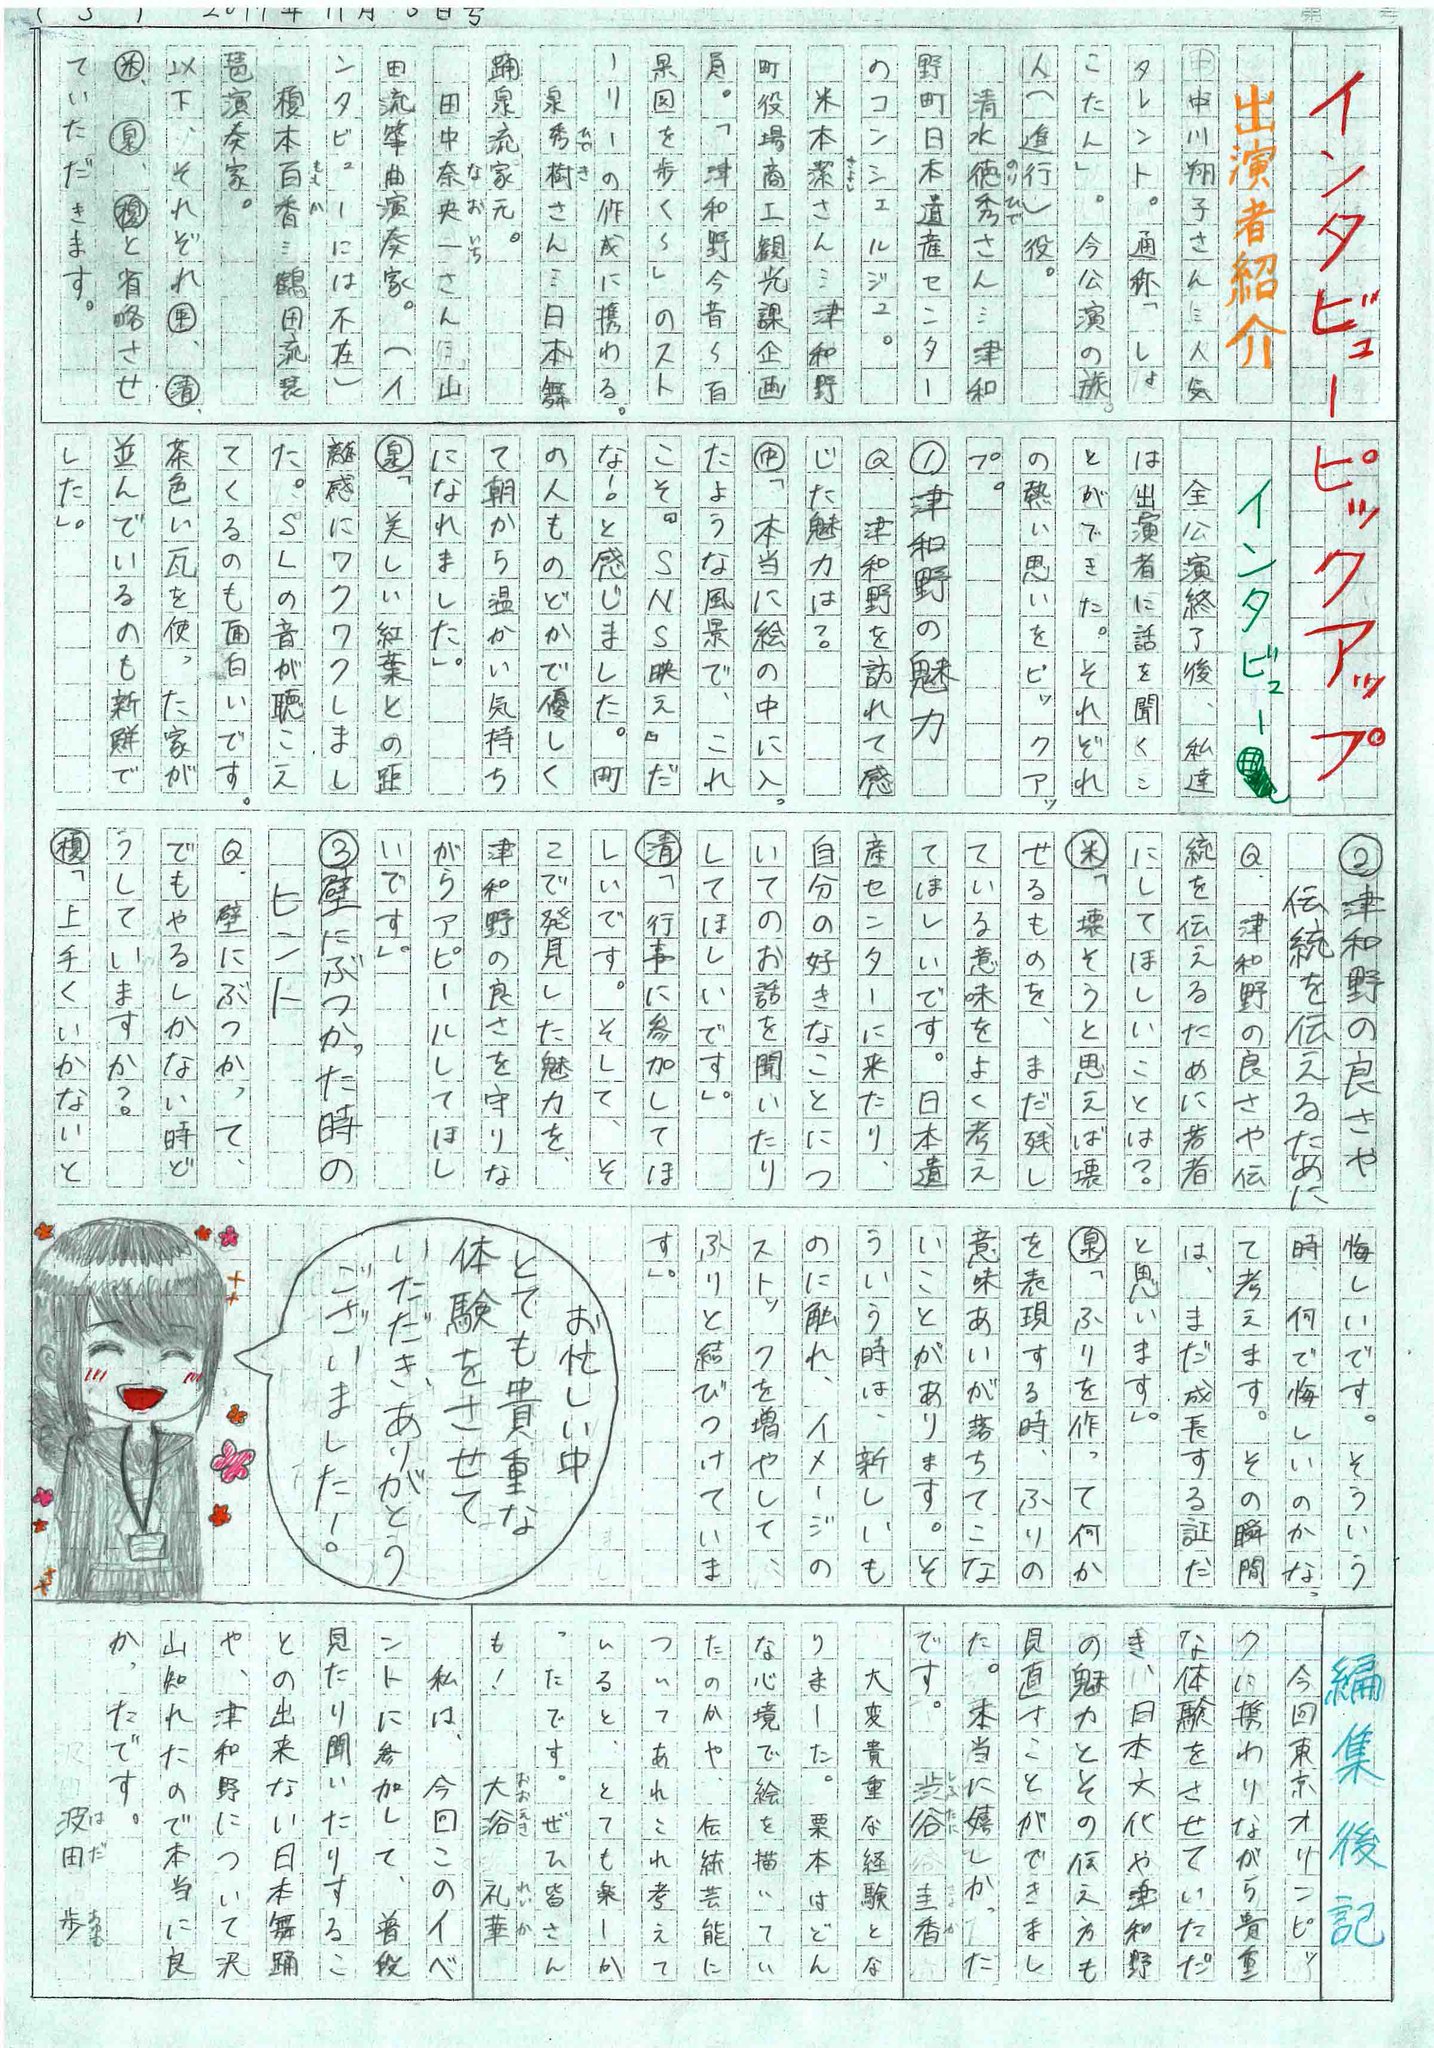 (3) 2019年11月
インタビューピックアップ
出演者紹介
中川翔子さん…人気
タレント。通称「しょ
こたん」。今公演の旅
人(進行し役。
清水徳秀さん…津和
のりひで
野町日本遺産センター
のコンシェルジュ。
米本潔さん…津和野
きよし
町役場商工観光課企画
員。「津和野今昔〜百
景図を歩く〜」のスト
ーリーの作成に携わる。
泉秀樹さん…日本舞
ひでき
踊泉流家元。
田中奈央一さん…山
なおいち
田流箏曲演奏家。(イ
ンタビューには不在)
榎本百香…鶴田流琵
ももか
琶演奏家。
以下、それぞれ㊥、㊡清、
㊍米、泉、榎と省略させ
ていただきます。
インタビュー
全公演終了後、私達
は出演者に話を聞くこ
とができた。それぞれ
の熱い思いをピックアッ
プ。
①津和野の魅力
Q.津和野を訪れて感
じた魅力は?
㊥「本当に絵の中に入っ
たような風景で、これ
こそ『SNS映え』だ
な!と感じました。町
の人ものどかで優しく
て朝から温かい気持ち
になれました」。
泉「美しい紅葉との距
離感にワクワクしまし
た。SLの音が聴こえ
てくるのも面白いです。
茶色い瓦を使った家が
並んでいるのも新鮮で
した」。
②津和野の良さや
伝統を伝えるために
Q.津和野の良さや伝
統を伝えるために若者
にしてほしいことは?
米「壊そうと思えば壊
せるものを、まだ残し
ている意味をよく考え
てほしいです。日本遺
産センターに来たり、
自分の好きなことにつ
いてのお話を聞いたり
してほしいです」。
清「行事に参加してほ
しいです。そして、そ
こで発見した魅力を、
津和野の良さを守りな
がらアピールしてほし
いです」。
③壁にぶつかった時の
ヒント
Q.壁にぶつかって、
でもやるしかない時ど
うしていますか?
榎「上手くいかないと
悔しいです。そういう
時、何で悔しいのかなっ
て考えます。その瞬間
は、まだ成長する証だ
と思います」。
泉「ふりを作って何か
を表現する時、ふりの
意味あいが落ちてこな
いことがあります。そ
ういう時は、新しいも
のに触れ、イメージの
ストックを増やして、
ふりと結びつけていま
す」。
お忙しい中
とても貴重な
体験をさせて
いただき、ありがとう
ございました!
編集後記
今回東京オリンピッ
クに携わりながら貴重
な体験をさせていただ
き、日本文化や津和野
の魅力とその伝え方も
見直すことができまし
た。本当に嬉しかった
です。 渋谷 圭香
大変貴重な経験とな
りました。栗本はどん
な心境で絵を描いてい
たのかや、伝統芸能に
ついてあれこれ考えて
いると、とても楽しか
ったです。ぜひ皆さん
も! 大谷 礼華
れいか
私は、今回このイベ
ントに参加して、普段
見たり聞いたりするこ
との出来ない日本舞踊
や、津和野について沢
山知れたので本当に良
かったです。
波田 歩
はだ あゆむ